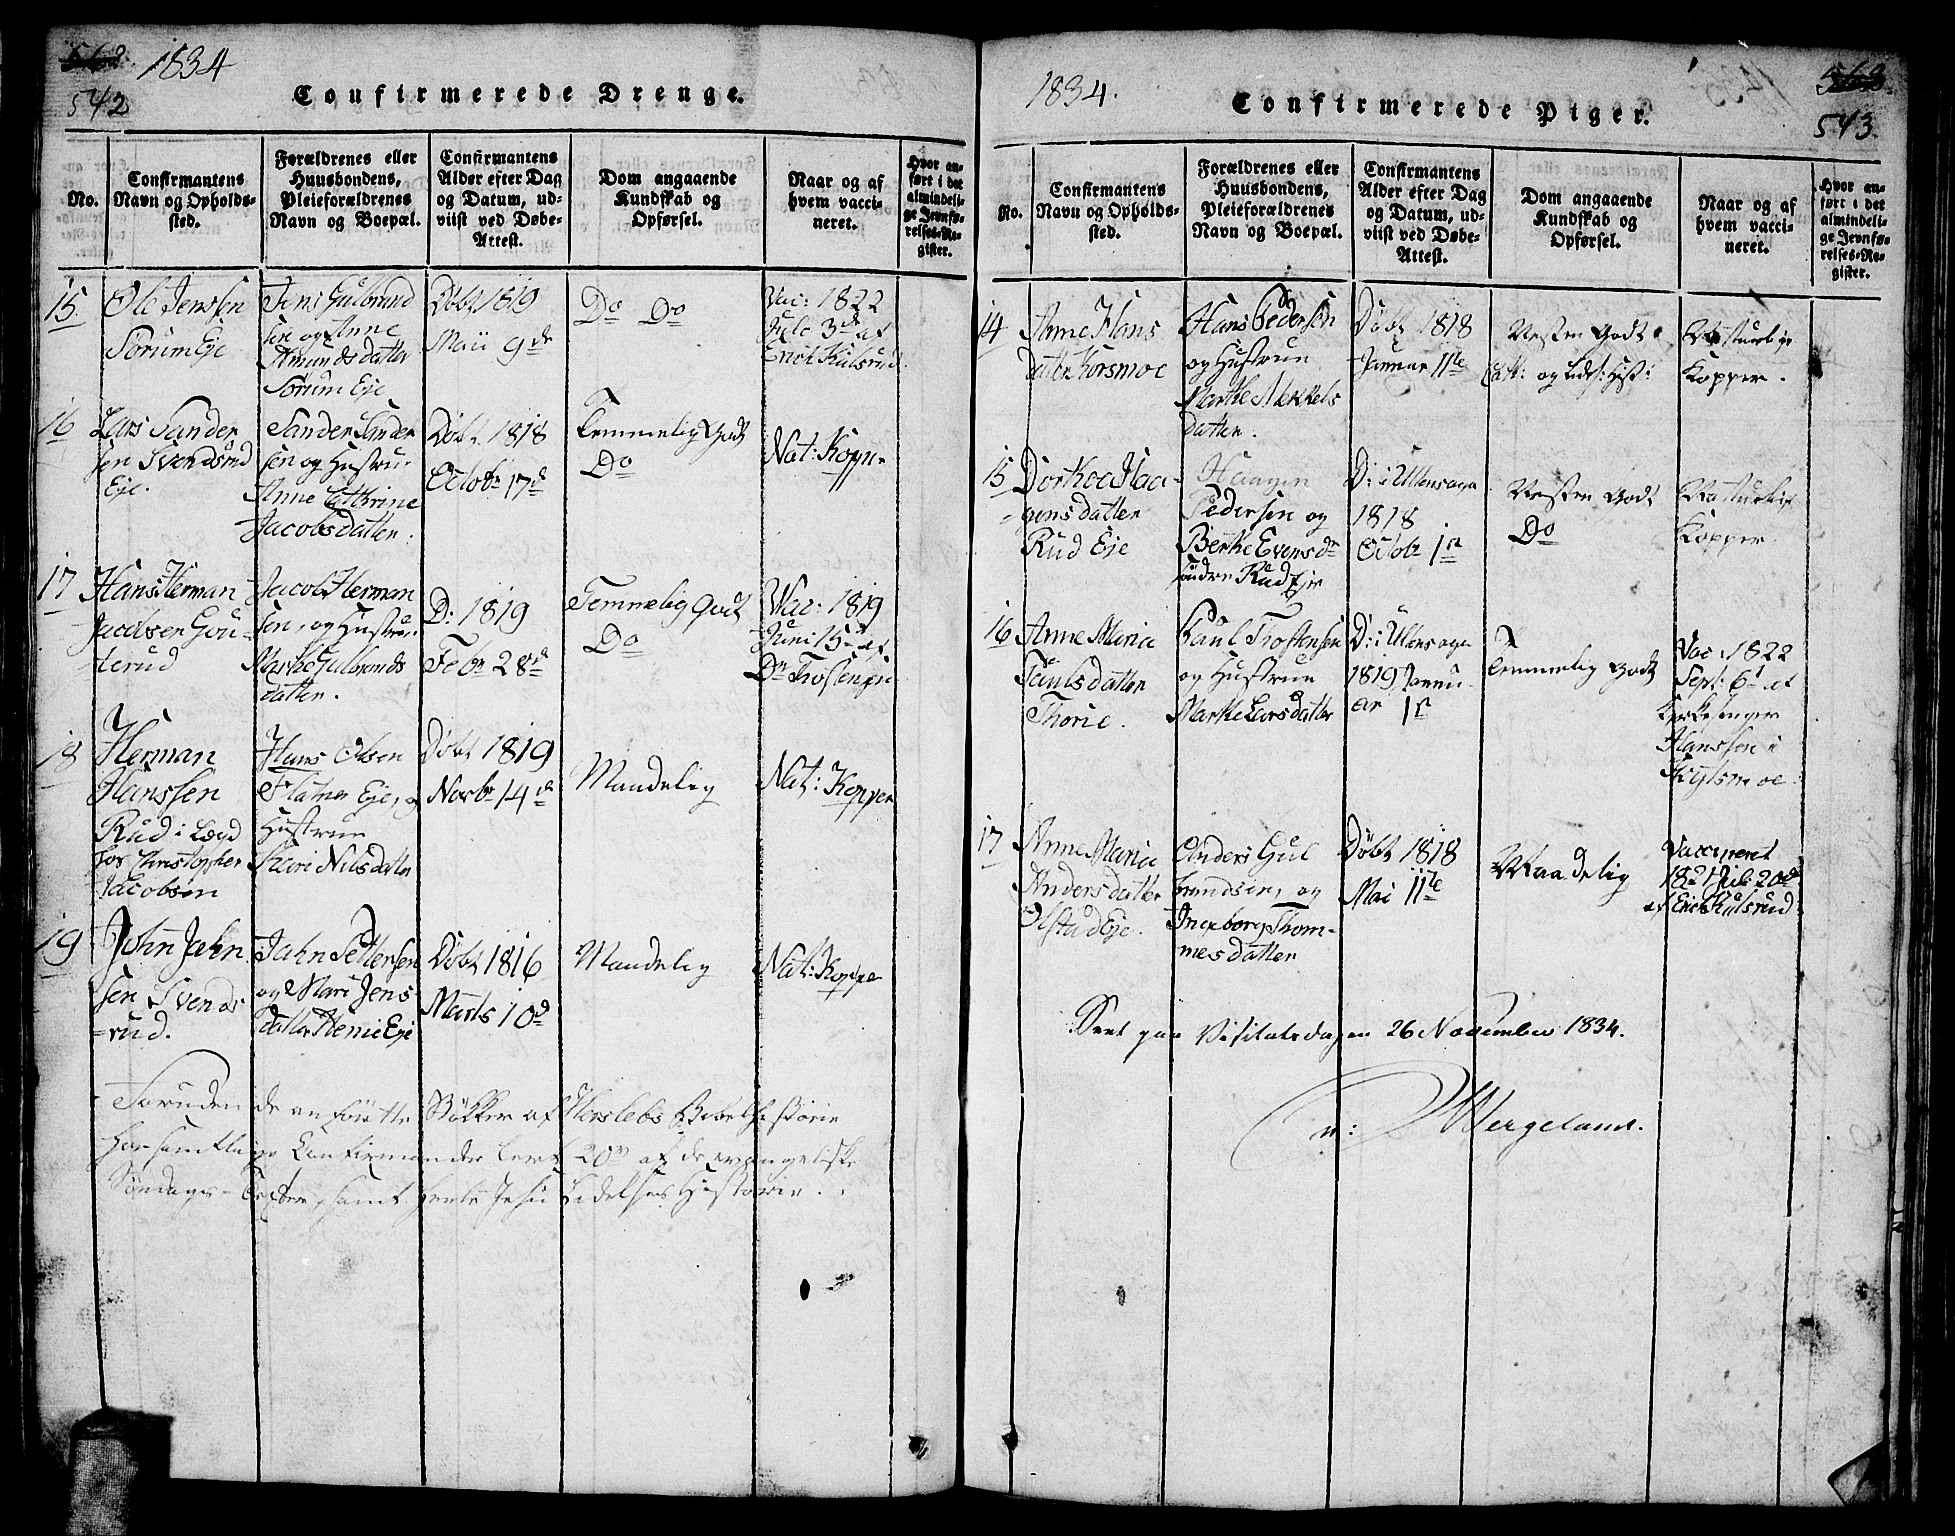 562. 1834
542
Confirmerede Drenge.
No.
Confirmantens
Navn og Opholds-
sted.
Forældrenes eller
Huusbondens,
Pleieforældrenes
Navn og Boepæl.
Confirmantens
Alder efter Dag
og Datum, ud-
viist ved Døbe-
Attest.
Dom angaaende
Kundskab og
Opførsel.
Naar og af
hvem vacci-
neret.
Hvor an-
ført i det
almindeli-
ge Jevnfø-
relses-Re-
gister.
15
Ole Jenssen
Sorum Eje
Jens Gulbrand
sen og Anne
Amundsdatter
Sorum Eje
Døbt 1819
Maii 9de
Do Do
Vac: 1822
Jule 3de af
Erick Kulsrud
16
Lars Sander
sen Svendsrud
Eje.
Sander Sander
sen og Hustru
Anne Cathrine
Jacobsdatter.
Døbt 1818
Octobr 17d
Temmelig Godt
Do
Nat: Kopper
17
Hans Herman
Jacobsen Gou-
terud
Jacob Herman
sen, og Hustru
Marthe Gulbrands
datter.
D: 1819
Febr 28d
Temmelig godt
Do
Vac: 1819
Juni 15d af
18
Herman
Hanssen
Rud i Lægd
hos Christopher
Jacobsen
Hans Olsen
Eje, og
Hustrue
Kari Nilsdatter
Døbt 1819
Novbr 14d
Maadelig
Nat: Kopper
19
John John
sen Svends
-rud.
John Pettersen
og Mari Jens
datter Eje
Døbt 1816
Marts 10d
Maadelig
Nat: Kopper
Foruden de anførte Stykker af Herslebs Bibelhistorie
har samtlige Confirmander lært 20 af de evangeliske
Søndags-Texter, samt Jesu Lidelses Historie.
1834.
Confirmerede Piger.
563.
543.
No.
Confirmantens
Navn og Opholds-
sted.
Forældrenes eller
Huusbondens,
Pleieforældrenes
Navn og Boepæl.
Confirmantens
Alder efter Dag
og Datum, ud-
viist ved Døbe-
Attest.
Dom angaaende
Kundskab og
Opførsel.
Naar og af
hvem vacci-
neret.
Hvor an-
ført i det
almindeli-
ge Jevnfø-
relses-Re-
gister.
14
Anne Hans
datter Korsmoe
Hans Pedersen
og Hustrue
Marthe Mekkels
datter.
Døbt 1818
Januar 11te
Næsten Godt
Naturlige
Kopper.
15
Dorthea Haa-
gensdatter
Rud Eje
Haagen
Pedersen og
Berthe Evensdr
søndre Rud Eje
D: i Ullensager
1818
Octobr 1n
Næsten Godt
Do
Naturlige
Kopper
16
Anne Maria
Paulsdatter
Thorie.
Paul Trostensen
og Hustrue
Marthe Larsdatter
D: i Ullensager
1819 Janu
ar 1n
Temmelig Godt
Vac. 1822
Sept: 6t af
Kirkesanger
Hanssen i
17
Anne Maria
Andersdatter
Olstad Eje.
Anders Gul
brandsen, og
Ingeborg Thom-
mesdatter
Døbt 1818
Mai 11te
Maadelig
Vaccineret
1821 Juli 20d
af Erick Kulsrud
Seet paa Visitatsdagen 26 November 1834.
n: Wergeland.